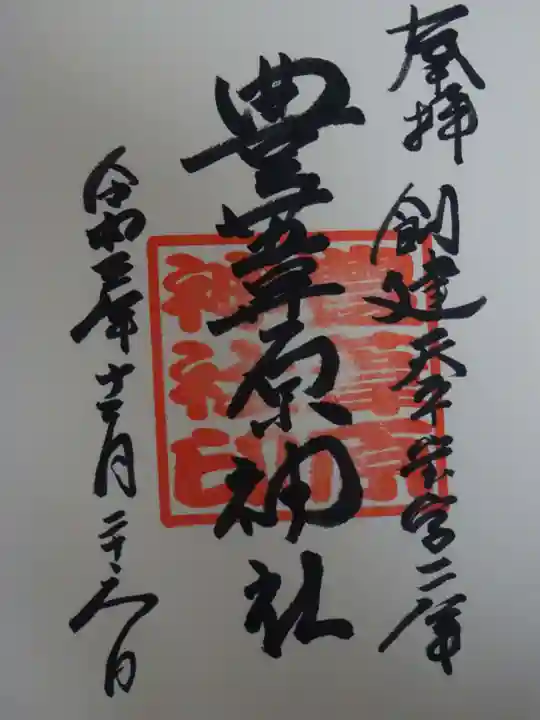 奉拝 創建天平宝字二年
豊葦原神社
豊葦原神社印
令和三年十二月二十六日